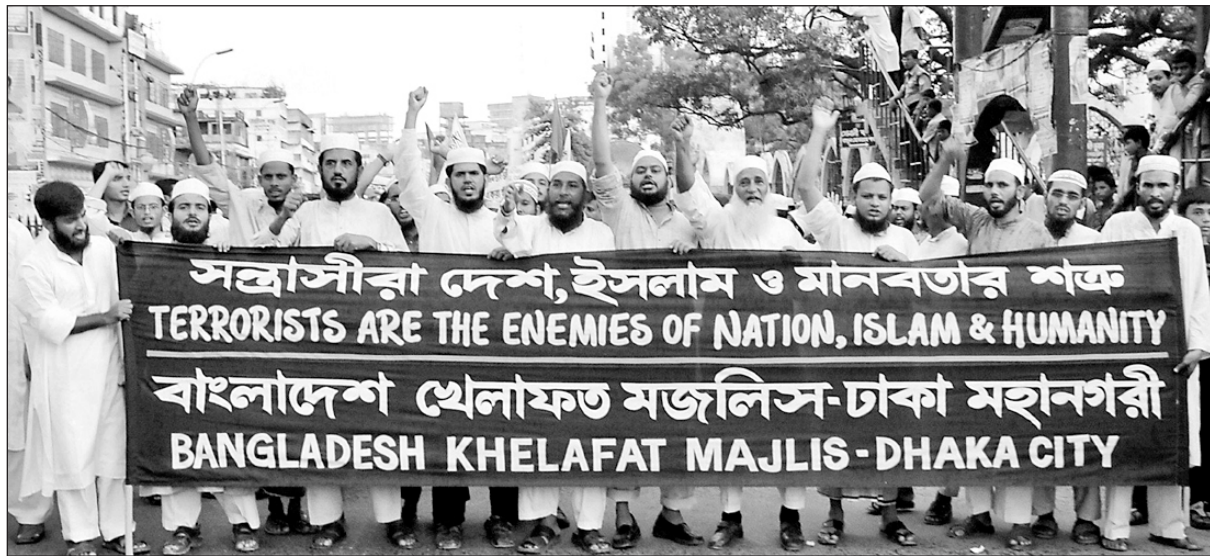 সন্ত্রাসীরা দেশ, ইসলাম ও মানবতার শত্রু
TERRORISTS ARE THE ENEMIES OF NATION, ISLAM & HUMANITY
বাংলাদেশ খেলাফত মজলিস-ঢাকা মহানগরী
BANGLADESH KHELAFAT MAJLIS-DHAKA CITY